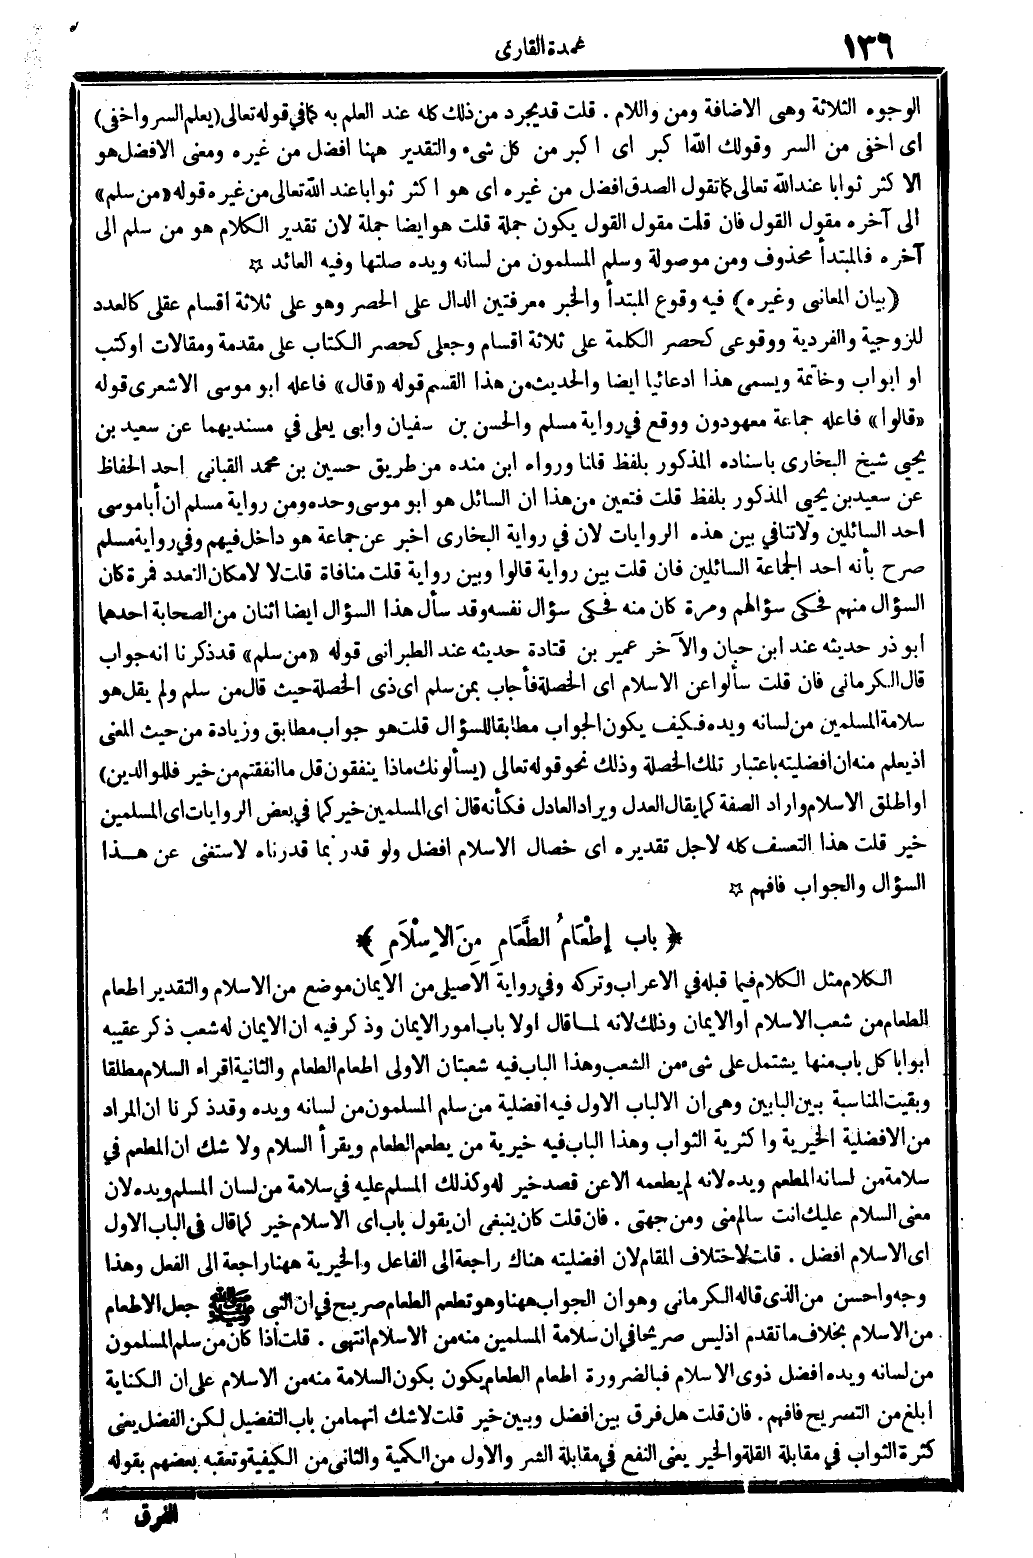 ١٣٦
عمدة القارى
الوجوه الثلاثة وهى الاضافة ومن واللام . قلت قديجرد من ذلك كله عند العلم به كما في قوله تعالى (يعلم السر واخفى)
اى اخفى من السر وقولك الله اكبر اى اكبر من كل شىء والتقدير ههنا افضل من غيره ومعنى الافضل هو
الاكثر ثوابا عند الله تعالى كما تقول الصدق افضل من غيره اى هو اكثر ثوابا عند الله تعالى من غيره قوله «من سلم»
الى آخره مقول القول فان قلت مقول القول يكون جملة قلت هو ايضا جملة لان تقدير الكلام هو من سلم الى
آخره فالمبتدأ محذوف ومن موصولة وسلم المسلمون من لسانه ويده صلتها وفيه العائد ☆
(بيان المعانى وغيره) فيه وقوع المبتدأ والخبر معرفتين الدال على الحصر وهو على ثلاثة اقسام عقلى كالعدد
للزوجية والفردية ووقوعى كحصر الكلمة على ثلاثة اقسام وجعلى كحصر الكتاب على مقدمة ومقالات اوكتب
او ابواب وخاتمة ويسمى هذا ادعائيا ايضا والحديث من هذا القسم قوله «قال» فاعله ابو موسى الاشعرى قوله
«قالوا» فاعله جماعة معهودون ووقع في رواية مسلم والحسن بن سفيان وابى يعلى في مسنديهما عن سعيد بن
يحيي شيخ البخارى باسناده المذكور بلفظ قلنا ورواه ابن منده من طريق حسين بن محمد القبانى احد الحفاظ
عن سعيد بن يحيي المذكور بلفظ قلت فتعين من هذا ان السائل هو ابو موسى وحده ومن رواية مسلم ان أبا موسى
احد السائلين ولا تنافي بين هذه الروايات لان في رواية البخارى اخبر عن جماعة هو داخل فيهم وفي رواية مسلم
صرح بأنه احد الجماعة السائلين فان قلت بين رواية قالوا وبين رواية قلت منافاة قلت لا لامكان التعدد فمرة كان
السؤال منهم فحكى سؤالهم ومرة كان منه فحكى سؤال نفسه وقد سأل هذا السؤال ايضا اثنان من الصحابة احدهما
ابو ذر حديثه عند ابن حبان والآخر عمير بن قتادة حديثه عند الطبرانى قوله «من سلم» قد ذكرنا انه جواب
قال الكرمانى فان قلت سألوا عن الاسلام اى الخصلة فأجاب بمن سلم اى ذى الخصلة حيث قال من سلم ولم يقل هو
سلامة المسلمين من لسانه ويده فكيف يكون الجواب مطابقا للسؤال قلت هو جواب مطابق وزيادة من حيث المعنى
اذ يعلم منه ان افضليته باعتبار تلك الخصلة وذلك نحو قوله تعالى (يسألونك ماذا ينفقون قل ما انفقتم من خير فللوالدين)
او اطلق الاسلام واراد الصفة كما يقال العدل ويراد العادل فكأنه قال اى المسلمين خير كما في بعض الروايات اى المسلمين
خير قلت هذا التعسف كله لاجل تقديره اى خصال الاسلام افضل ولو قدر بما قدرناه لاستغنى عن هذا
السؤال والجواب فافهم ☆
﴿ باب إطْعَامُ الطَّعَامِ مِنَ الاِسْلَامِ ﴾
الكلام مثل الكلام فيما قبله في الاعراب وتركه وفي رواية الاصيلى من الايمان موضع من الاسلام والتقدير اطعام
الطعام من شعب الاسلام او الايمان وذلك لانه لما قال اولا باب امور الايمان وذكر فيه ان الايمان له شعب ذكر عقيبه
ابوابا كل باب منها يشتمل على شىء من الشعب وهذا الباب فيه شعبتان الاولى اطعام الطعام والثانية اقراء السلام مطلقا
وبقيت المناسبة بين البابين وهى ان الالباب الاول فيه افضلية من سلم المسلمون من لسانه ويده وقد ذكرنا ان المراد
من الافضلية الخيرية واكثرية الثواب وهذا الباب فيه خيرية من يطعم الطعام ويقرأ السلام ولا شك ان المطعم في
سلامة من لسانه المطعم ويده لانه لم يطعمه الا عن قصد خير له وكذلك المسلم عليه في سلامة من لسان المسلم ويده لان
معنى السلام عليك انت سالم منى ومن جهتى . فان قلت كان ينبغى ان يقول باب اى الاسلام خير كما قال في الباب الاول
اى الاسلام افضل . قلت لاختلاف المقام لان افضليته هناك راجعة الى الفاعل والخيرية ههنا راجعة الى الفعل وهذا
وجه واحسن من الذى قاله الكرمانى وهو ان الجواب ههنا وهو تطعم الطعام صريح في ان النبى ﷺ جعل الاطعام
من الاسلام بخلاف ما تقدم اذ ليس صريحا في ان سلامة المسلمين منه من الاسلام انتهى . قلت اذا كان من سلم المسلمون
من لسانه ويده افضل ذوى الاسلام فبالضرورة اطعام الطعام يكون بكون السلامة منه من الاسلام على ان الكناية
ابلغ من التصريح فافهم . فان قلت هل فرق بين افضل وبين خير قلت لا شك انهما من باب التفضيل لكن الفضل يعنى
كثرة الثواب في مقابلة القلة والخير يعنى النفع في مقابلة الشر والاول من الكمية والثانى من الكيفية وتعقبه بعضهم بقوله
الفرق